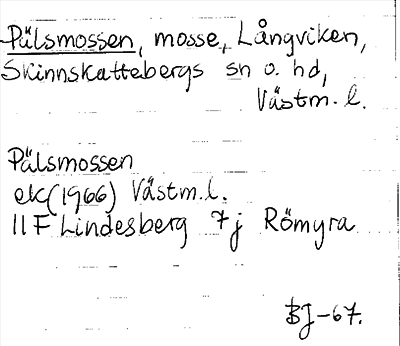 Pälsmossen, mosse, Långviken,
Skinnskattebergs sn o. hd,
Västm. l.
Pälsmossen
ek (1966) Västm.l.
11 F Lindesberg 7j Römyra
BJ-67.